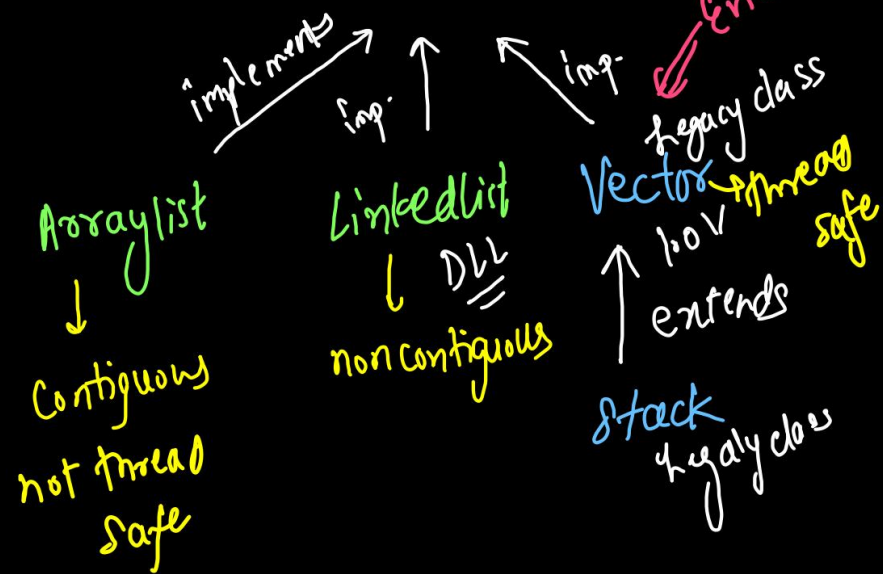 implements
imp.
imp.
Legacy class
Arraylist
LinkedList
Vector → thread
safe
1.0V
DLL
extends
Contiguous
non contiguous
not thread
safe
Stack
Legaly class